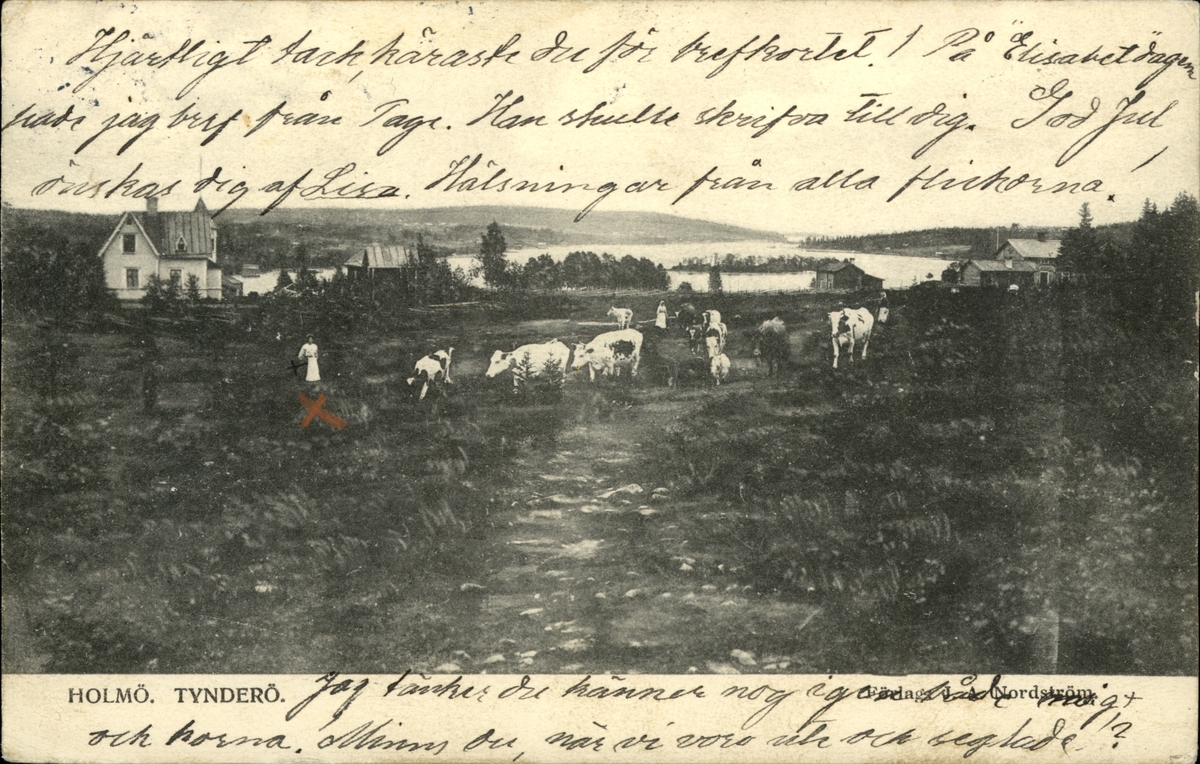 Hjärtligt tack, käraste du för brefkortet! På Elisabetdagen
hade jag bref från Tage. Han skulle skrifva till dig. God Jul
önskas dig af Lisa. Hälsningar från alla flickorna!
HOLMÖ. TYNDERÖ.
Förlag: J. A. Nordström.
Jag tänker du känner nog igen både mig +
och korna. Minns du, när vi voro ute och seglade!?